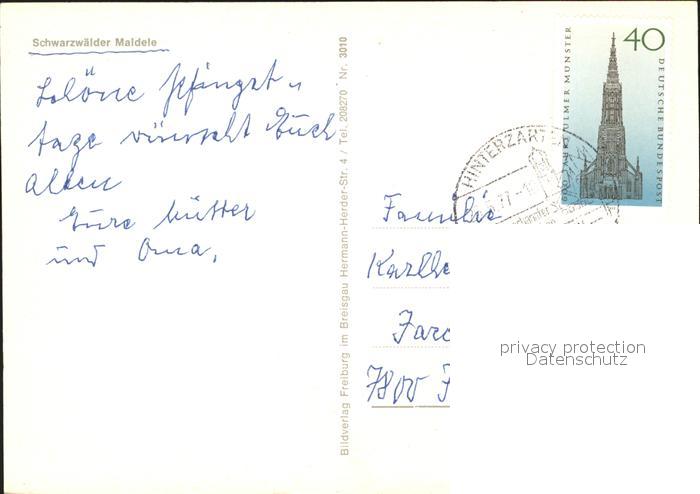 Schwarzwälder Maidele
Schöne Pfingst-
tage wünscht Euch
allen
Eure Mutter
und Oma.
Bildverlag Freiburg im Breisgau Hermann-Herder-Str. 4 / Tel. 208270 Nr. 3010
40
DEUTSCHE BUNDESPOST
600 JAHRE ULMER MÜNSTER
HINTERZART
77
Familie
Karlhe
7800 F
privacy protection
Datenschutz